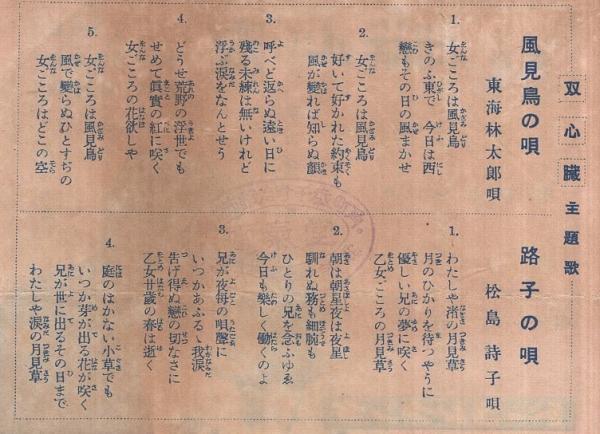 双心臓 主題歌
風見鳥の唄
東海林太郎唄
1.
女ごころは風見鳥
きのふ東で 今日は西
戀もその日の風まかせ
2.
女ごころは風見鳥
好いて好かれた約束も
風が變れば知らぬ顔
3.
呼べど返らぬ遠い日に
残る未練は無いけれど
浮ぶ涙をなんとせう
4.
どうせ荒野の浮世でも
せめて眞實の紅に咲く
女ごころの花欲しや
5.
女ごころは風見鳥
風で變らぬひとすぢの
女ごころはどこの空
路子の唄
松島詩子唄
1.
わたしや渚の月見草
月のひかりを待つやうに
優しい兄の夢に咲く
乙女ごころの月見草
2.
朝は朝星夜は夜星
馴れぬ務も細腕も
ひとりの兄を念ふゆゑ
今日も樂しく働くのよ
3.
兄が夜毎の唄聲に
いつかあふるゝ我涙
告げ得ぬ戀の切なさに
乙女廿歳の春は逝く
4.
庭のはかない小草でも
いつか芽が出る花が咲く
兄が世に出るその日まで
わたしや涙の月見草